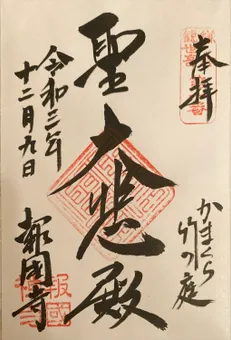 奉拝
かまくら
竹の庭
聖大悲殿
令和三年
十二月九日
報国寺
報國寺